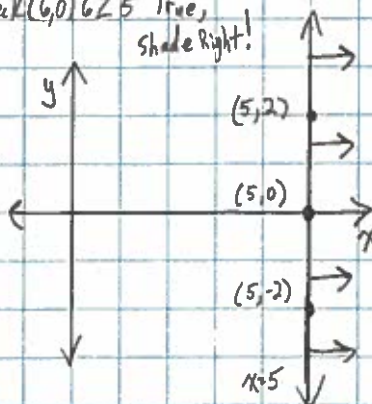 (6,0) 6<5 True,
Shade Right!
y
(5,2)
(5,0)
x
(5,-2)
x=5